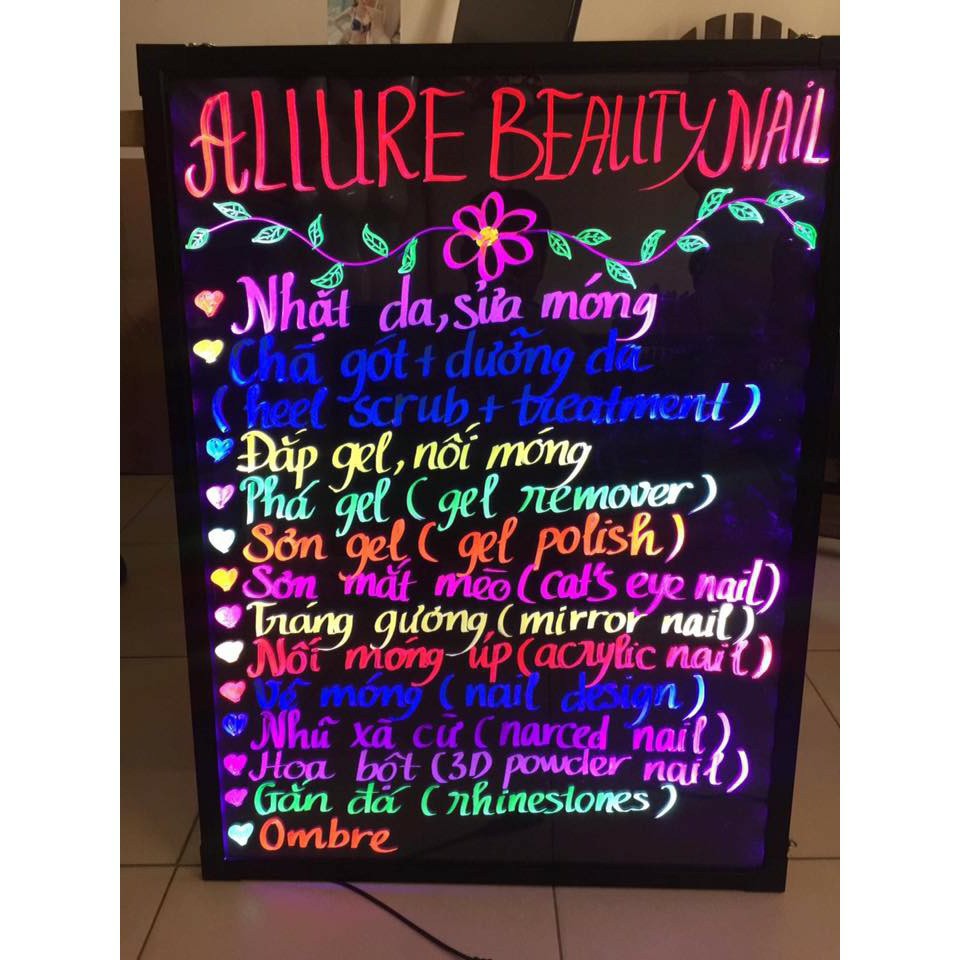 ALLURE BEAUTY NAIL
Nhặt da, sửa móng
Chà gót + dưỡng da
(heel scrub + treatment)
Đắp gel, nối móng
Phá gel (gel remover)
Sơn gel (gel polish)
Sơn mắt mèo (cat's eye nail)
Tráng gương (mirror nail)
Nối móng úp (acrylic nail)
Vẽ móng (nail design)
Nhũ xà cừ (narced nail)
Hoa bột (3D powder nail)
Gắn đá (rhinestones)
Ombre